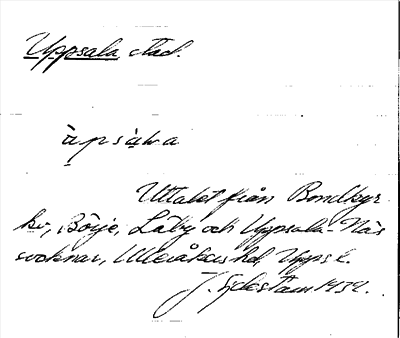 Uppsala stad.
ùpsàla
Uttalet från Bondkyr
ko, Börje, Läby och Uppsala-Näs
socknar, Ulleråkers hd, Upps l.
J. Sjöstam 1932.